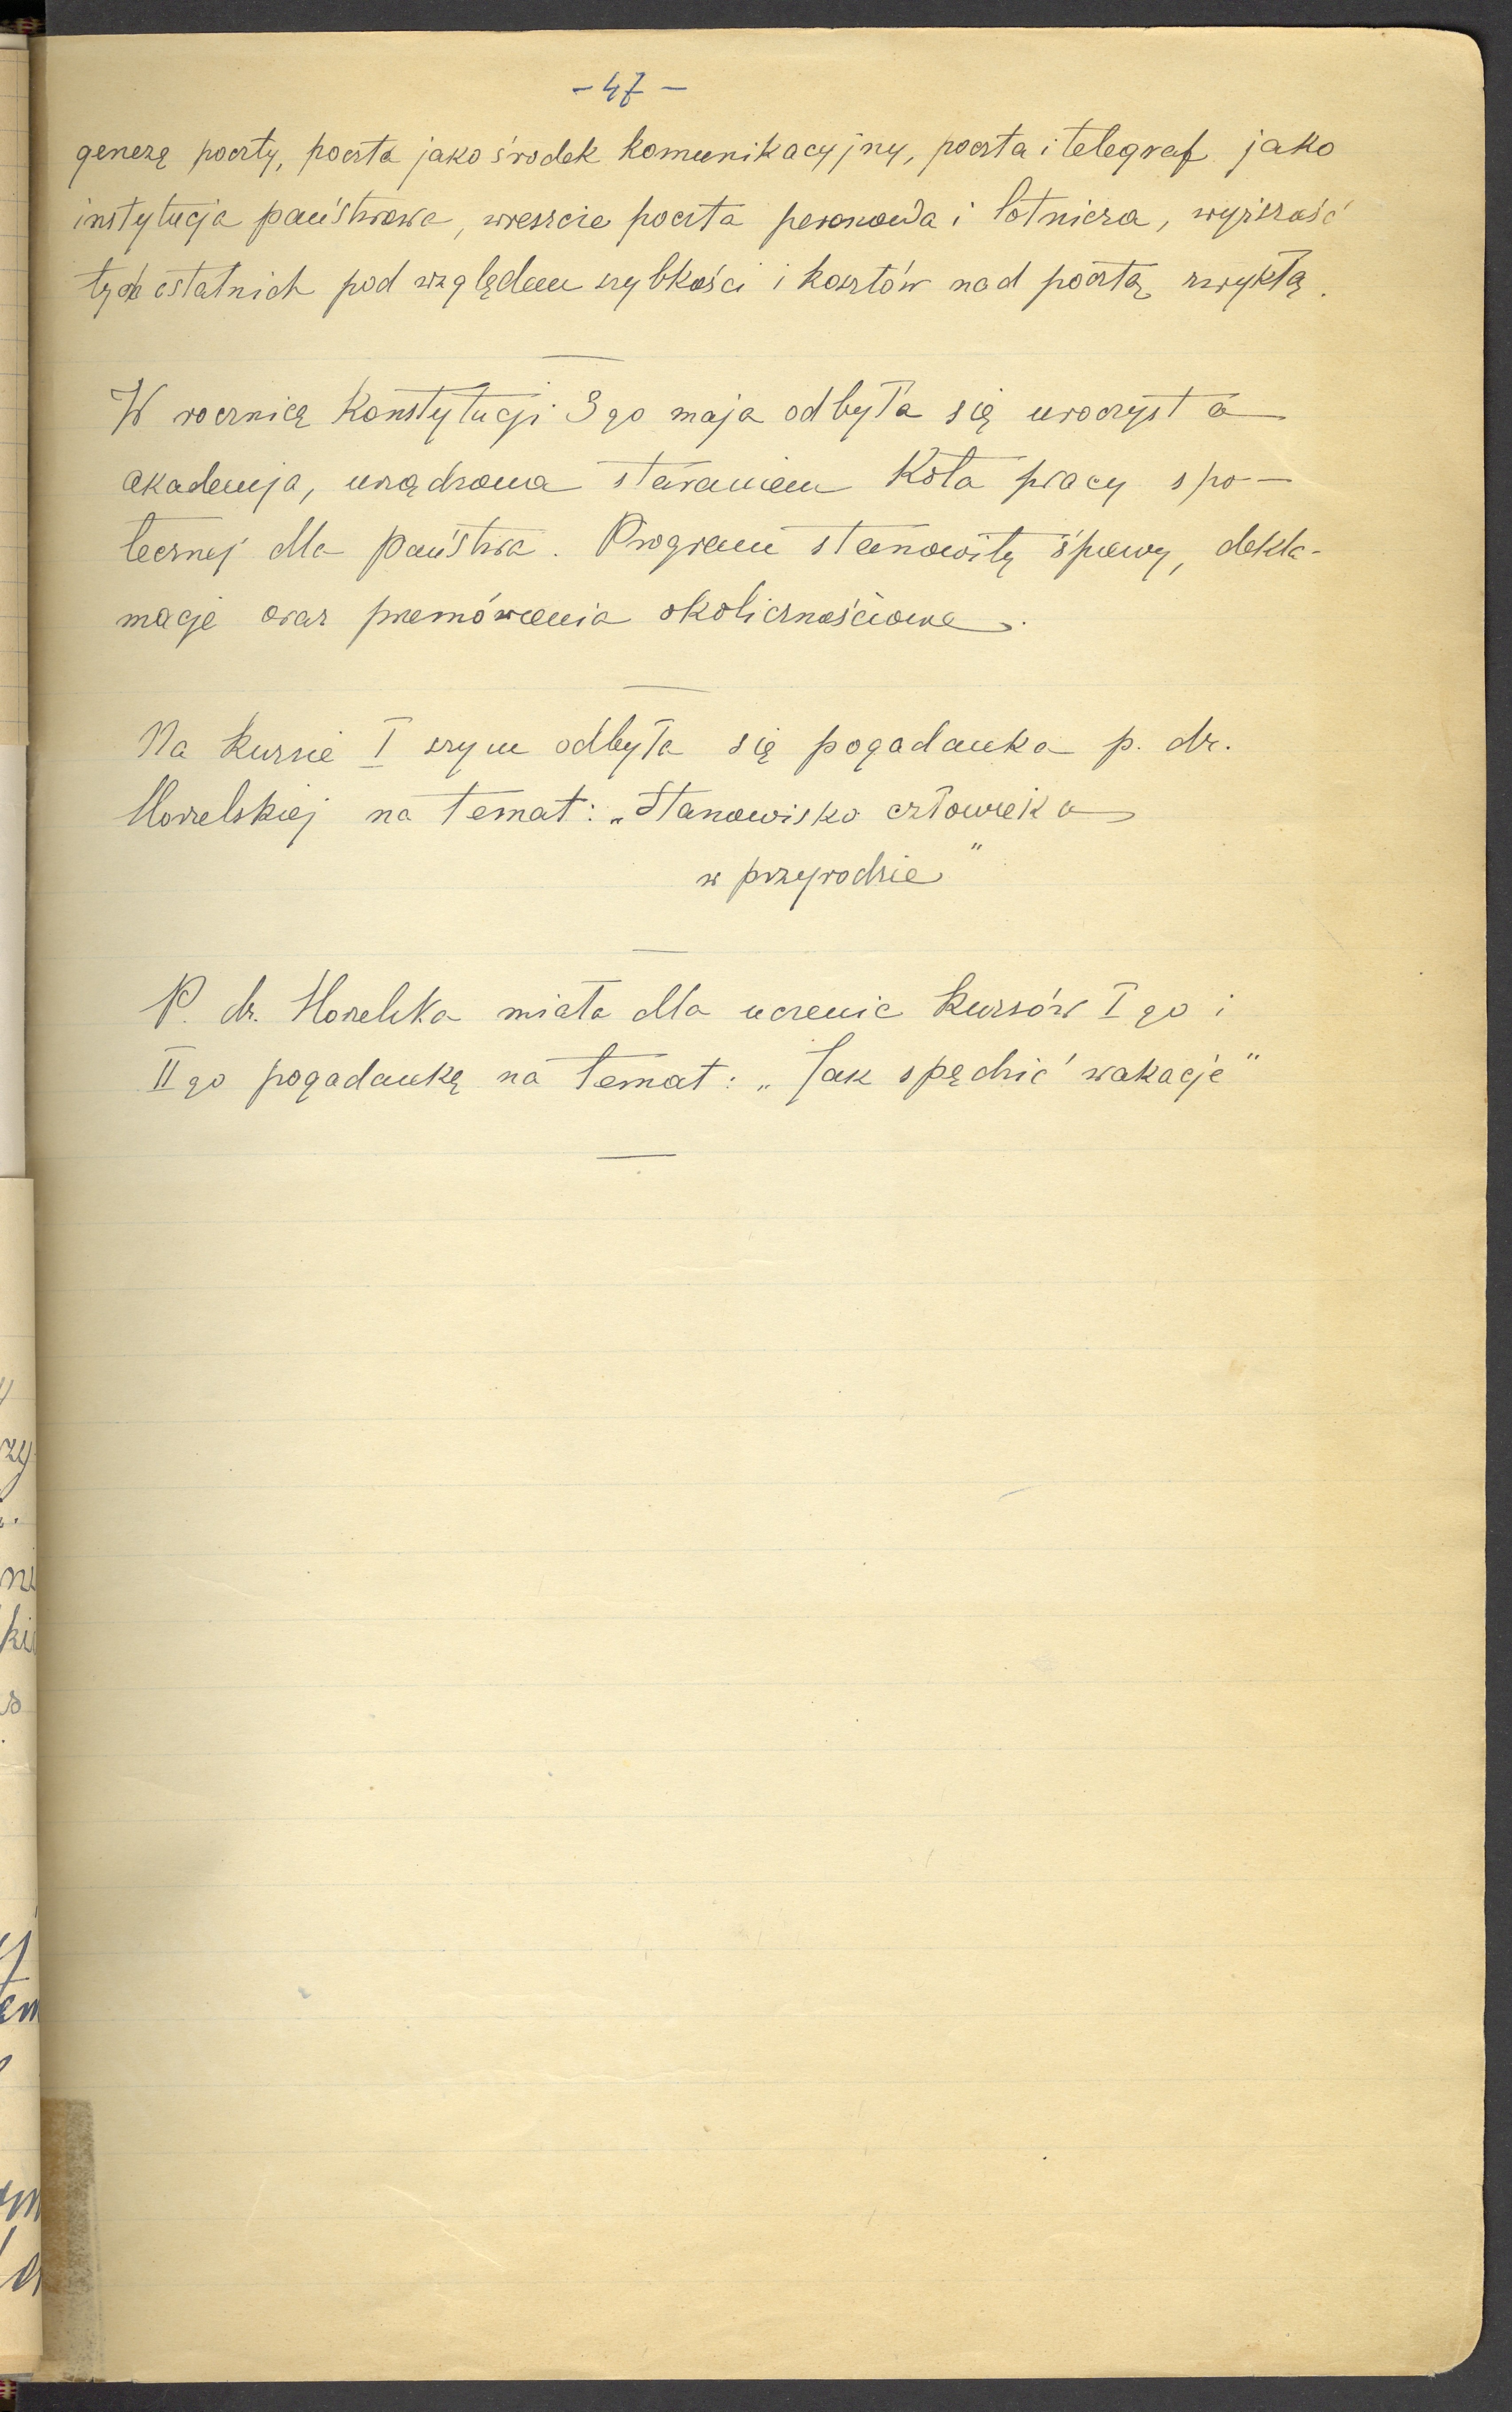 - 47 -
genezą poczty, poczta jako środek komunikacyjny, poczta i telegraf jako
instytucja państwowa, wreszcie poczta peronowa i lotnicza, wyższość
tych ostatnich pod względem szybkości i kosztów nad pocztą zwykłą.
W rocznicę Konstytucji 3 go maja odbyła się uroczysta
akademja, urządzona staraniem Koła pracy spo-
łecznej dla państwa. Program stanowiły śpiewy, dekla-
macje oraz przemówienia okolicznościowe.
Na kursie I szym odbyła się pogadanka p. dr.
na temat: „Stanowisko człowieka
w przyrodzie"
P. dr. miała dla uczenic kursów I go i
II go pogadankę na temat: „Jak spędzić wakacje"